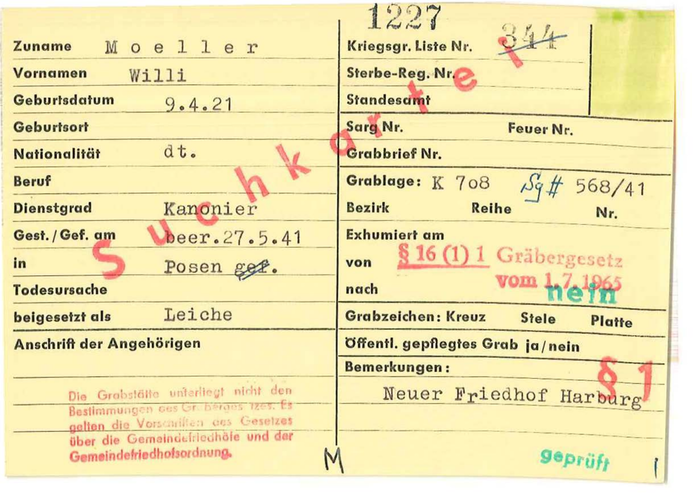 1227
Zuname Moeller
Vornamen Willi
Geburtsdatum 9.4.21
Geburtsort
Nationalität dt.
Beruf
Dienstgrad Kanonier
Gest./Gef. am beer.27.5.41
in Posen gef.
Todesursache
beigesetzt als Leiche
Anschrift der Angehörigen
Die Grabstätte unterliegt nicht den
Bestimmungen des Gräbergesetzes. Es
gelten die Vorschriften des Gesetzes
über die Gemeindefriedhöfe und der
Gemeindefriedhofsordnung.
M
Suchkartei
Kriegsgr. Liste Nr. 344
Sterbe-Reg. Nr.
Standesamt
Sarg Nr. Feuer Nr.
Grabbrief Nr.
Grablage: K 708 Sg# 568/41
Bezirk Reihe Nr.
Exhumiert am
von § 16 (1) 1 Gräbergesetz
vom 1.7.1965
nach nein
Grabzeichen: Kreuz Stele Platte
Öffentl. gepflegtes Grab ja/nein
Bemerkungen: § 1
Neuer Friedhof Harburg
geprüft